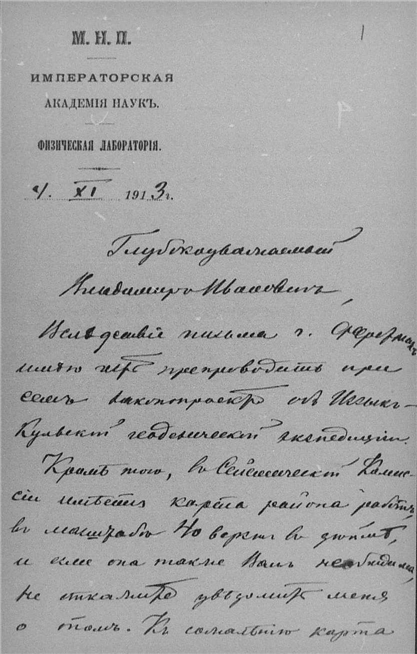 1
М. Н. П.
ИМПЕРАТОРСКАЯ
АКАДЕМІЯ НАУКЪ.
ФИЗИЧЕСКАЯ ЛАБОРАТОРІЯ.
4. XI 1913 г.
Глубокоуважаемый
Владиміръ Ивановичъ,
Вслѣдствіе письма г.
имѣю препроводить при
семъ законопроектъ объ Иссыкъ-
Кульской геодезической экспедиціи.
Кромѣ того, въ Сейсмической Комис-
сіи имѣется карта района работъ
въ масштабѣ 40 верстъ въ дюймѣ,
и если она также Вамъ необходима,
не откажите увѣдомить меня
о томъ. Къ сожалѣнію карта